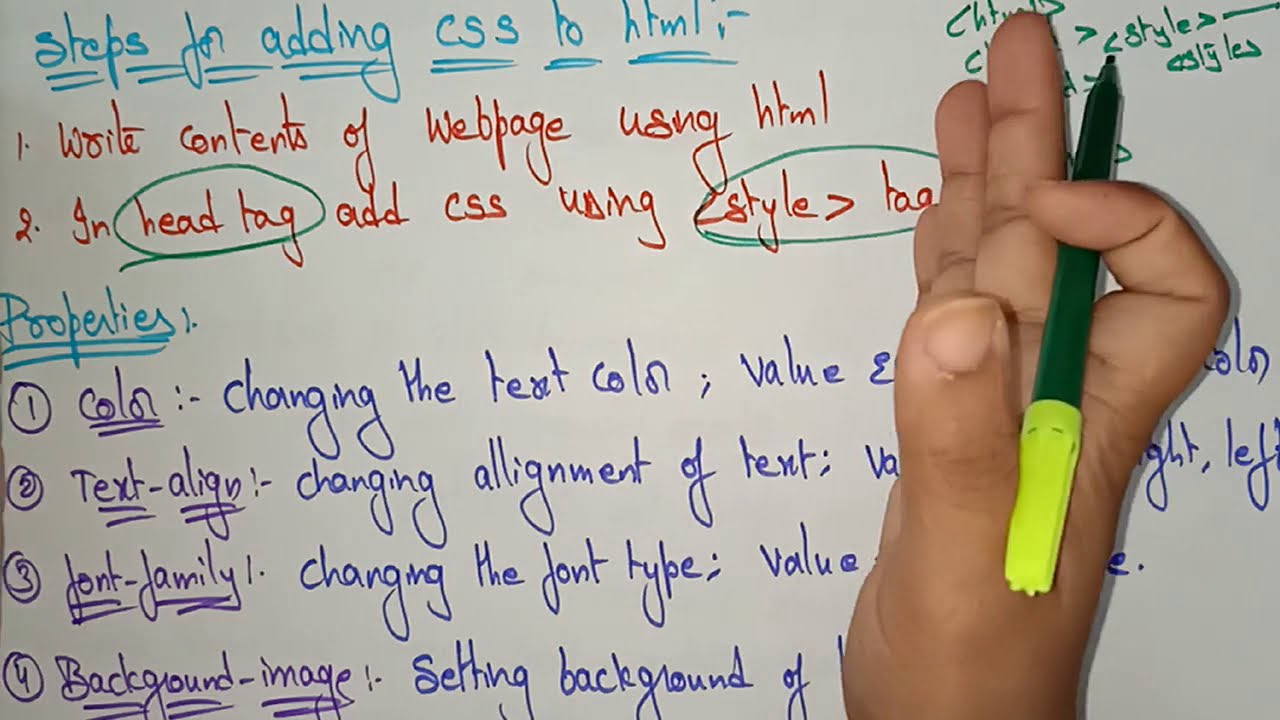 steps for adding css to html :-
<html>
> <style>
<styles
1. Write contents of webpage using html
2. In head tag add css using <style> tag
Properties :-
① Color :- changing the text color ; value color
② Text-align :- changing allignment of text ; left
③ font-family :- changing the font type ; value
④ Background-image :- Setting background of